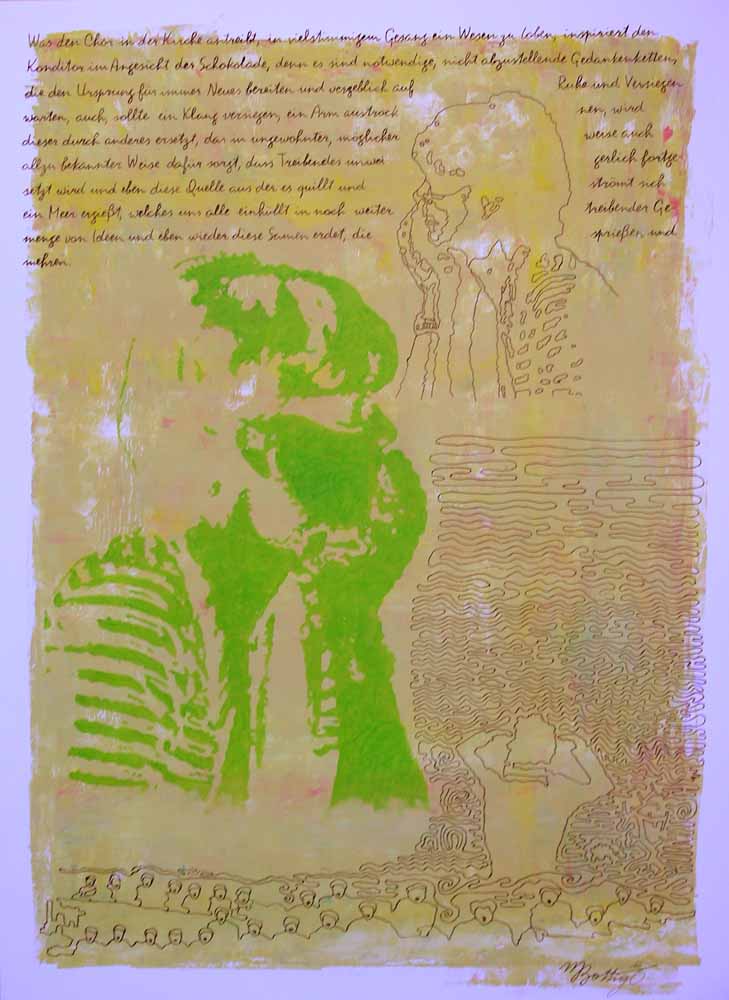 Was den Chor in der Kirche antreibt, in vielstimmigem Gesang ein Wesen zu loben, inspiriert den
Konditor im Angesicht der Schokolade, denn es sind notwendige, nicht abzustellende Gedankenketten,
die den Ursprung für immer Neues bereiten und vergeblich auf Ruhe und Versiegen
warten, auch, sollte ein Klang versiegen, ein Arm austrock nen, wird
dieser durch anderes ersetzt, das in ungewohnter, möglicher weise auch
allzu bekannter Weise dafür sorgt, dass Treibendes unwei gerlich fortge
setzt wird und eben diese Quelle aus der es quillt und strömt sich
ein Meer ergießt, welches uns alle einhüllt in noch weiter treibender Ge
menge von Ideen und eben wieder diese Samen erdet, die sprießen und
mehren.